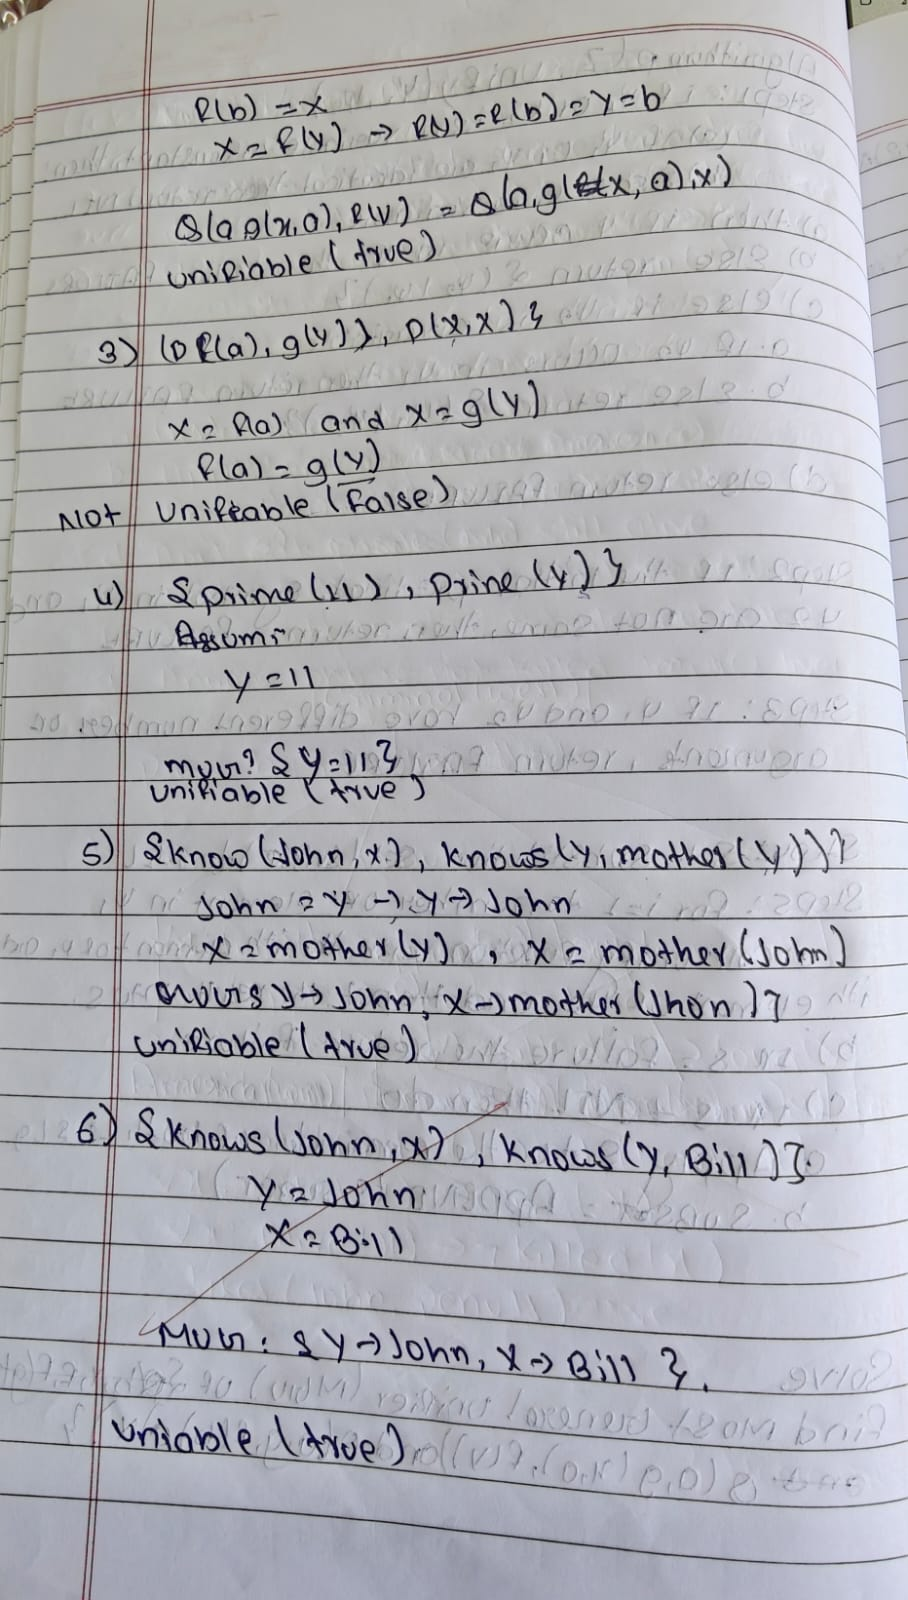 f(b) = x
x = f(y) → f(y) = f(b) = y = b
Q(a, g(x, a), f(y)) = Q(a, g(x, a), x)
unifiable (true)
3) (P f(a), g(y)}, P(x, x) }
x = f(a) and x = g(y)
f(a) = g(y)
Not unifiable (False)
4) {prime (11), prine (y) }
Assum:
y = 11
mgu? { y = 11 }
unifiable (true)
5) {know (John, x), knows (y, mother (y)) }
John = y → y → John
x = mother (y), x = mother (John)
y → John, x → mother (Jhon) }
unifiable (true)
6) {knows (John, x), knows (y, Bill) }.
y = John
x = Bill
MGU : { y → John, x → Bill }.
uniable (true)